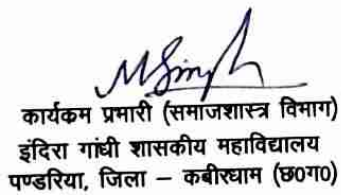 MSingh
कार्यकम प्रभारी (समाजशास्त्र विभाग)
इंदिरा गांधी शासकीय महाविद्यालय
पण्डरिया, जिला – कबीरधाम (छ0ग0)